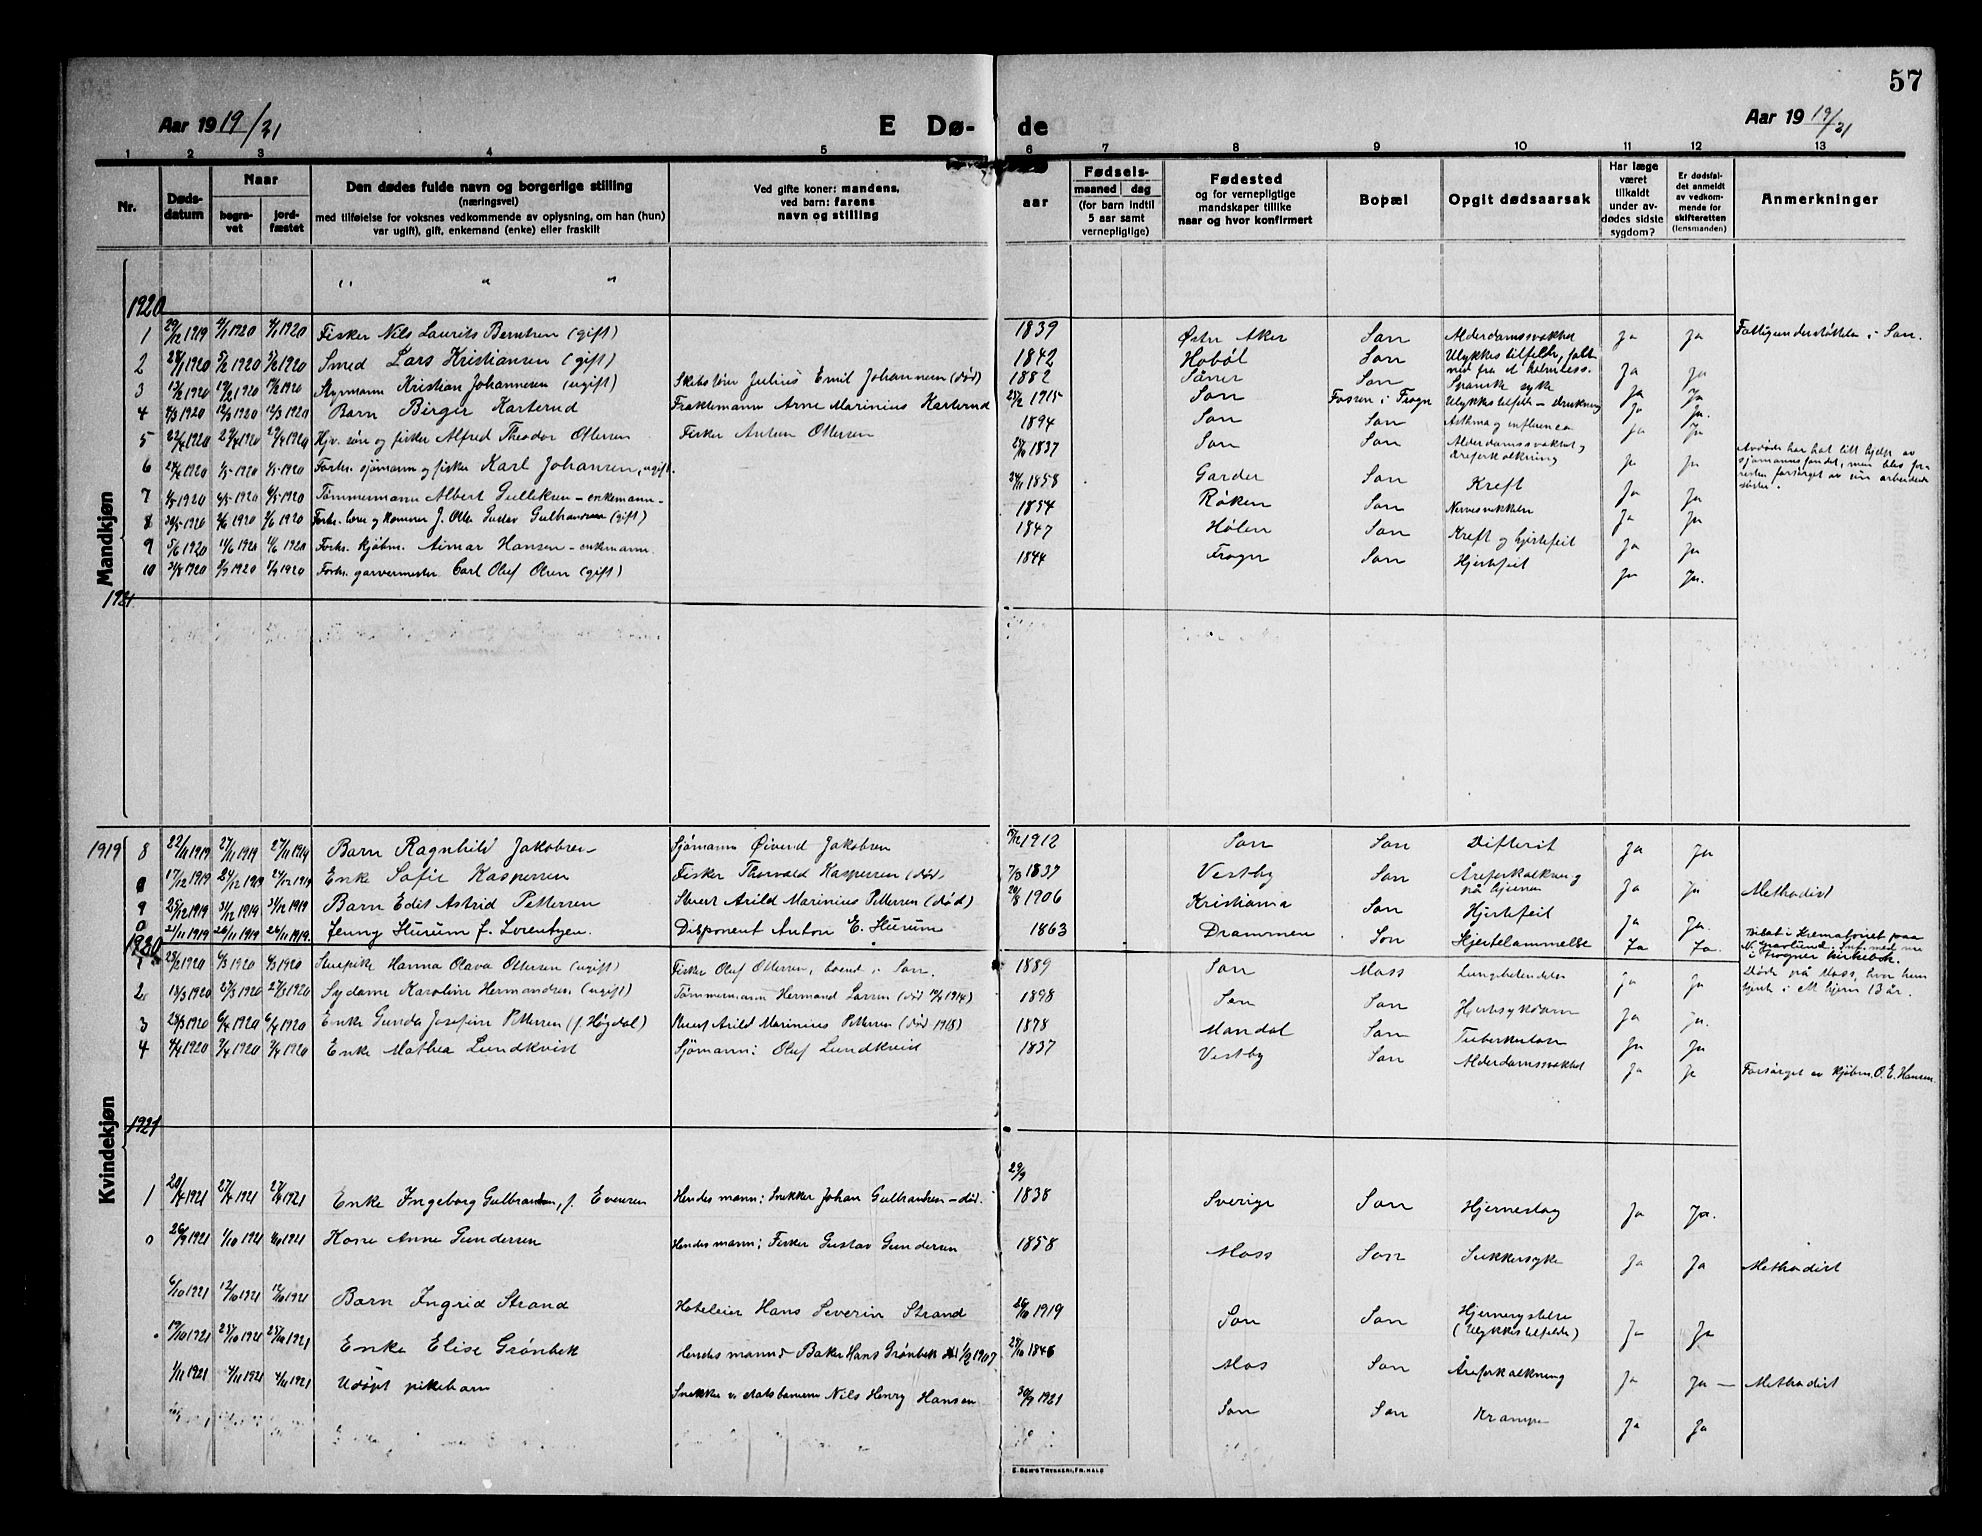 57
Aar 1919/21
E Dø-
de
Aar 1919/21
1 2 3 4 5 6 7 8 9 10 11 12 13
Nr.
Døds-
datum
Naar
begra-
vet
jord-
fæstet
Den dødes fulde navn og borgerlige stilling
(næringsvei)
med tilføielse for voksnes vedkommende av oplysning, om han (hun)
var ugift), gift, enkemand (enke) eller fraskilt
Ved gifte koner: mandens,
ved barn: farens
navn og stilling
aar
Fødsels-
maaned dag
(for barn indtil
5 aar samt
vernepligtige)
Fødested
og for vernepligtige
mandskaper tillike
naar og hvor konfirmert
Bopæl
Opgit dødsaarsak
Har læge
været
tilkaldt
under av-
dødes sidste
sygdom?
Er dødsfal-
det anmeldt
av vedkom-
mende for
skifteretten
(lensmanden)
Anmerkninger
Mandkjøn
" " "
1920
1 29/12 1919 4/1 1920 4/1 1920 Fisker Nils Laurits Berntsen (gift) 1839 Østre Aker Son Alderdomssvakhet Ja Ja Fattigunderstøttelse i Son.
2 28/1 1920 5/2 1920 5/2 1920 Smed Lars Kristiansen (gift) 1842 Hobøl Son Ulykkestilfelde, falt ned fra et Ja Ja
3 13/2 1920 19/2 1920 19/2 1920 Styrmann Kristian Johannesen (ugift) Skibsfører Julius Emil Johannesen (død) 1882 Såner Son Spansk syke Ja Ja
4 4/3 1920 12/3 1920 12/3 1920 Barn Birger Karterud Fraktemann Arne Marinius Karterud 23/2 1915 Son Fossen i Frogn Ulykkestilfelde - drukning Ja Ja.
5 22/4 1920 29/4 1920 29/4 1920 Hjv. søre og fisker Alfred Theodor Ottersen Fisker Anton Ottersen 1894 Son Son Asthma og influensa Ja Ja
6 24/4 1920 1/5-1920 1/5-1920 Forh. sjømann og fisker Karl Johansen, ugift. 1837 Son Son Alderdomssvakhet og åreforkalkning Ja Ja Avdøde har hat litt hjelp av
sjømannsfondet, men blev for-
resten forsørget av sin arbeidende
søster.
7 1/5-1920 6/5-1920 6/5-1920 Tømmermann Albert Gulliksen - enkemann - 24/11 1858 Garder Son Kreft Ja Ja
8 30/5-1920 3/6 1920 3/6 1920 1854 Røken Son Nervesvekkelse Ja Ja
9 5/6 1920 11/6 1920 11/6 1920 Forh. kjøbm. Aimar Hansen - enkemann. 1847 Hølen Son Kreft og hjertefeil Ja Ja
10 1920 1920 1920 Forh. garvermester Carl Oluf Olsen (gift) 1844 Frogn Son Hjertefeil Ja Ja.
1921
Kvindekjøn
1919 8 22/11 1919 27/11 1919 27/11 1919 Barn Ragnhild Jakobsen Sjømann Øivind Jakobsen 1912 Son Son Difterit Ja Ja
0 17/12 1919 24/12 1919 24/12 1919 Enke Sofie Kaspersen Fisker Thorvald Kaspersen (død) 1837 Vestby Son Åreforkalkning på hjernen Ja Ja Methodist
9 25/12 1919 31/12 1919 31/12 1919 Barn Edit Astrid Pettersen Stuert Arild Marinius Pettersen (død) 20/8 1906 Kristiania Son Hjertefeil Ja Ja.
0 21/11 1919 26/11 1919 26/11 1919. Jenny Hurum f. Lorentzen. Disponent Anton E. Hurum 1863 Drammen Son Hjertelammelse Ja Ja. Bisat i Krematoriet paa
N. Gravlund. Inf. med nu
i Frogner kirkebok.
1920
1 28/2 1920 6/3 1920 6/3 1920 Hanna Olava Ottersen (ugift) Fisker Oluf Ottersen, boende i Son. 1889 Son Moss Lungebetendelse Ja Ja Døde på Moss, hvor hun
tjente i 13 år.
2 18/3 1920 27/3 1920 27/3 1920 Sydame Karoline Hermandsen (ugift) Tømmermann Hermand Larsen (død 1914) 1898 Son Son Hjertesykdom Ja Ja.
3 28/3 1920 6/4 1920 6/4 1920 Enke Gunda Josefine Pettersen (f. Høgdal) Stuert Arild Marinius Pettersen (død 1918) 1878 Mandal Son Tuberkulose Ja Ja
4 4/4 1920 9/4 1920 9/4 1920 Enke Mathea Lundkvist Sjømann: Oluf Lundkvist 1837 Vestby Son Alderdomssvakhet Ja Ja Forsørget av kjøbm. O. E. Hansen.
1921
1 20/4 1921 27/4 1921 27/4 1921 Enke Ingeborg Gulbrandsen, f. Evensen Hendes mann: Snekker Johan Gulbrandsen - død. 29/9 1838 Sverige Son Hjerneslag Ja Ja.
0 26/9 1921 1/10 1921 1921 Kone Anne Gundersen Hendes mann: Fisker Gustav Gundersen 1858 Moss Son Sukkersyke Ja Ja Methodist
6/10 1921 12/10 1921 12/10 1921 Barn Ingrid Strand Hoteleier Hans Severin Strand 26/10 1919 Son Son Hjernerystelse
(Ulykkestilfelde) Ja Ja
19/10 1921 25/10 1921 25/10 1921 Enke Elise Grønbek Hendes mand - Baker Hans Grønbek død 1907. 28/10 1846 Mos Son Åreforkalkning Ja Ja - Methodist
1/11 1921 4/11 1921 4/11 1921 Udøpt pikebarn Snekker v. statsbanerne Nils Henry Hansen. 30/9 1921 Son Son Krampe Ja Ja